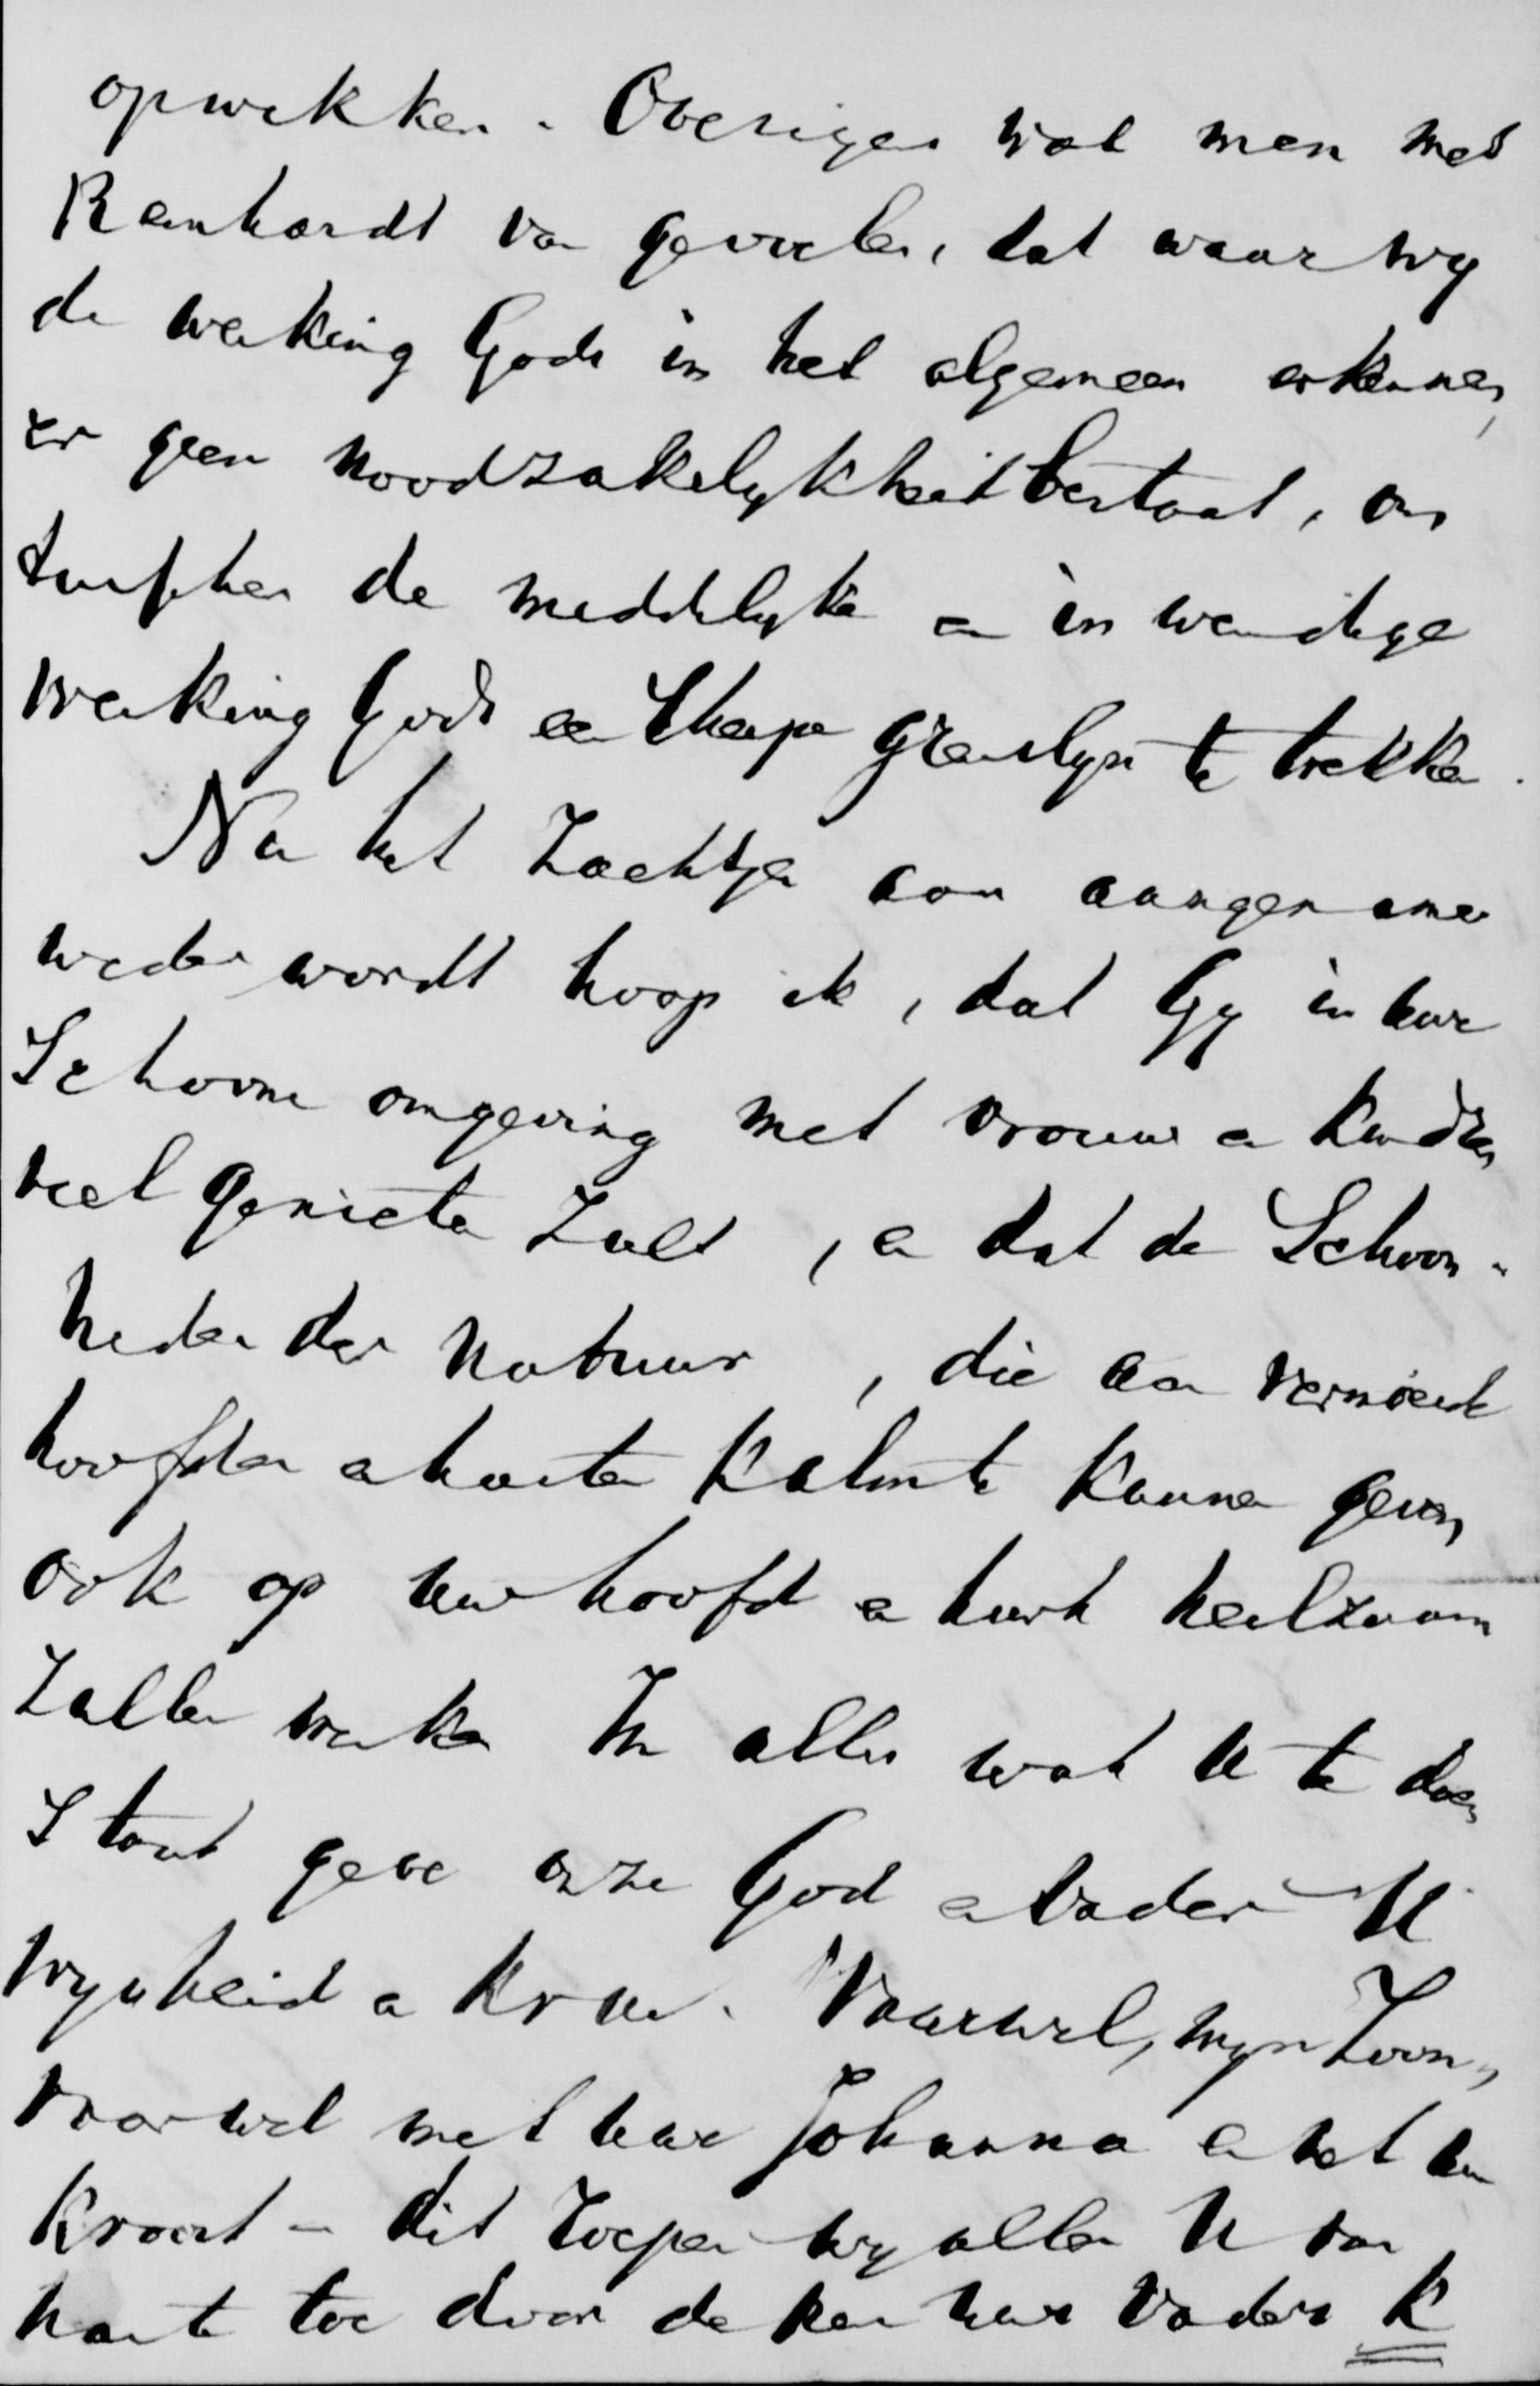 opwekken. Overigens wat men met
Reinhardt van gevoelen, dat waar wy
de werking Gods in het algemeen erkennen,
er geen noodzakelykheid bestaat, om
tusschen de middelyke en inwendige
werking Gods een scherpe grenslyn te trekken.
Nu het zachtjes aan aangenamer
weder wordt hoop ik, dat Gy in uwe
Schoone omgeving met vrouw en kindren
veel genieten zult, en dat de Schoon-
heden der Natuur, die aan vermoeide
hoofden en harten kalmte kunnen geven,
ook op uw hoofd en hart heilzaam
zullen werken In alles wat U te doen
Staat geve onze God en Vader U
wysheid en kracht. Vaarwel, myn Zoon,
Vaarwel met uwe Johanna en het
kroost – dit roepen wy allen U van
harte toe door de pen uws Vaders K